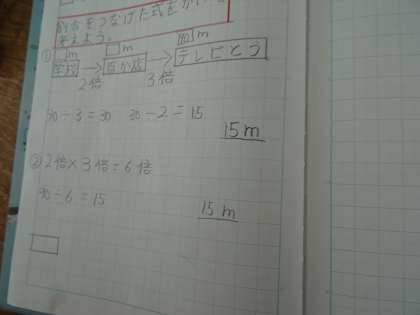 割合をつなげた式をかいて
考えよう。
① □m □m 90m
学校 → 百か店 → テレビとう
2倍 3倍
90÷3=30 30÷2=15
15m
②2倍×3倍=6倍
90÷6=15
15m